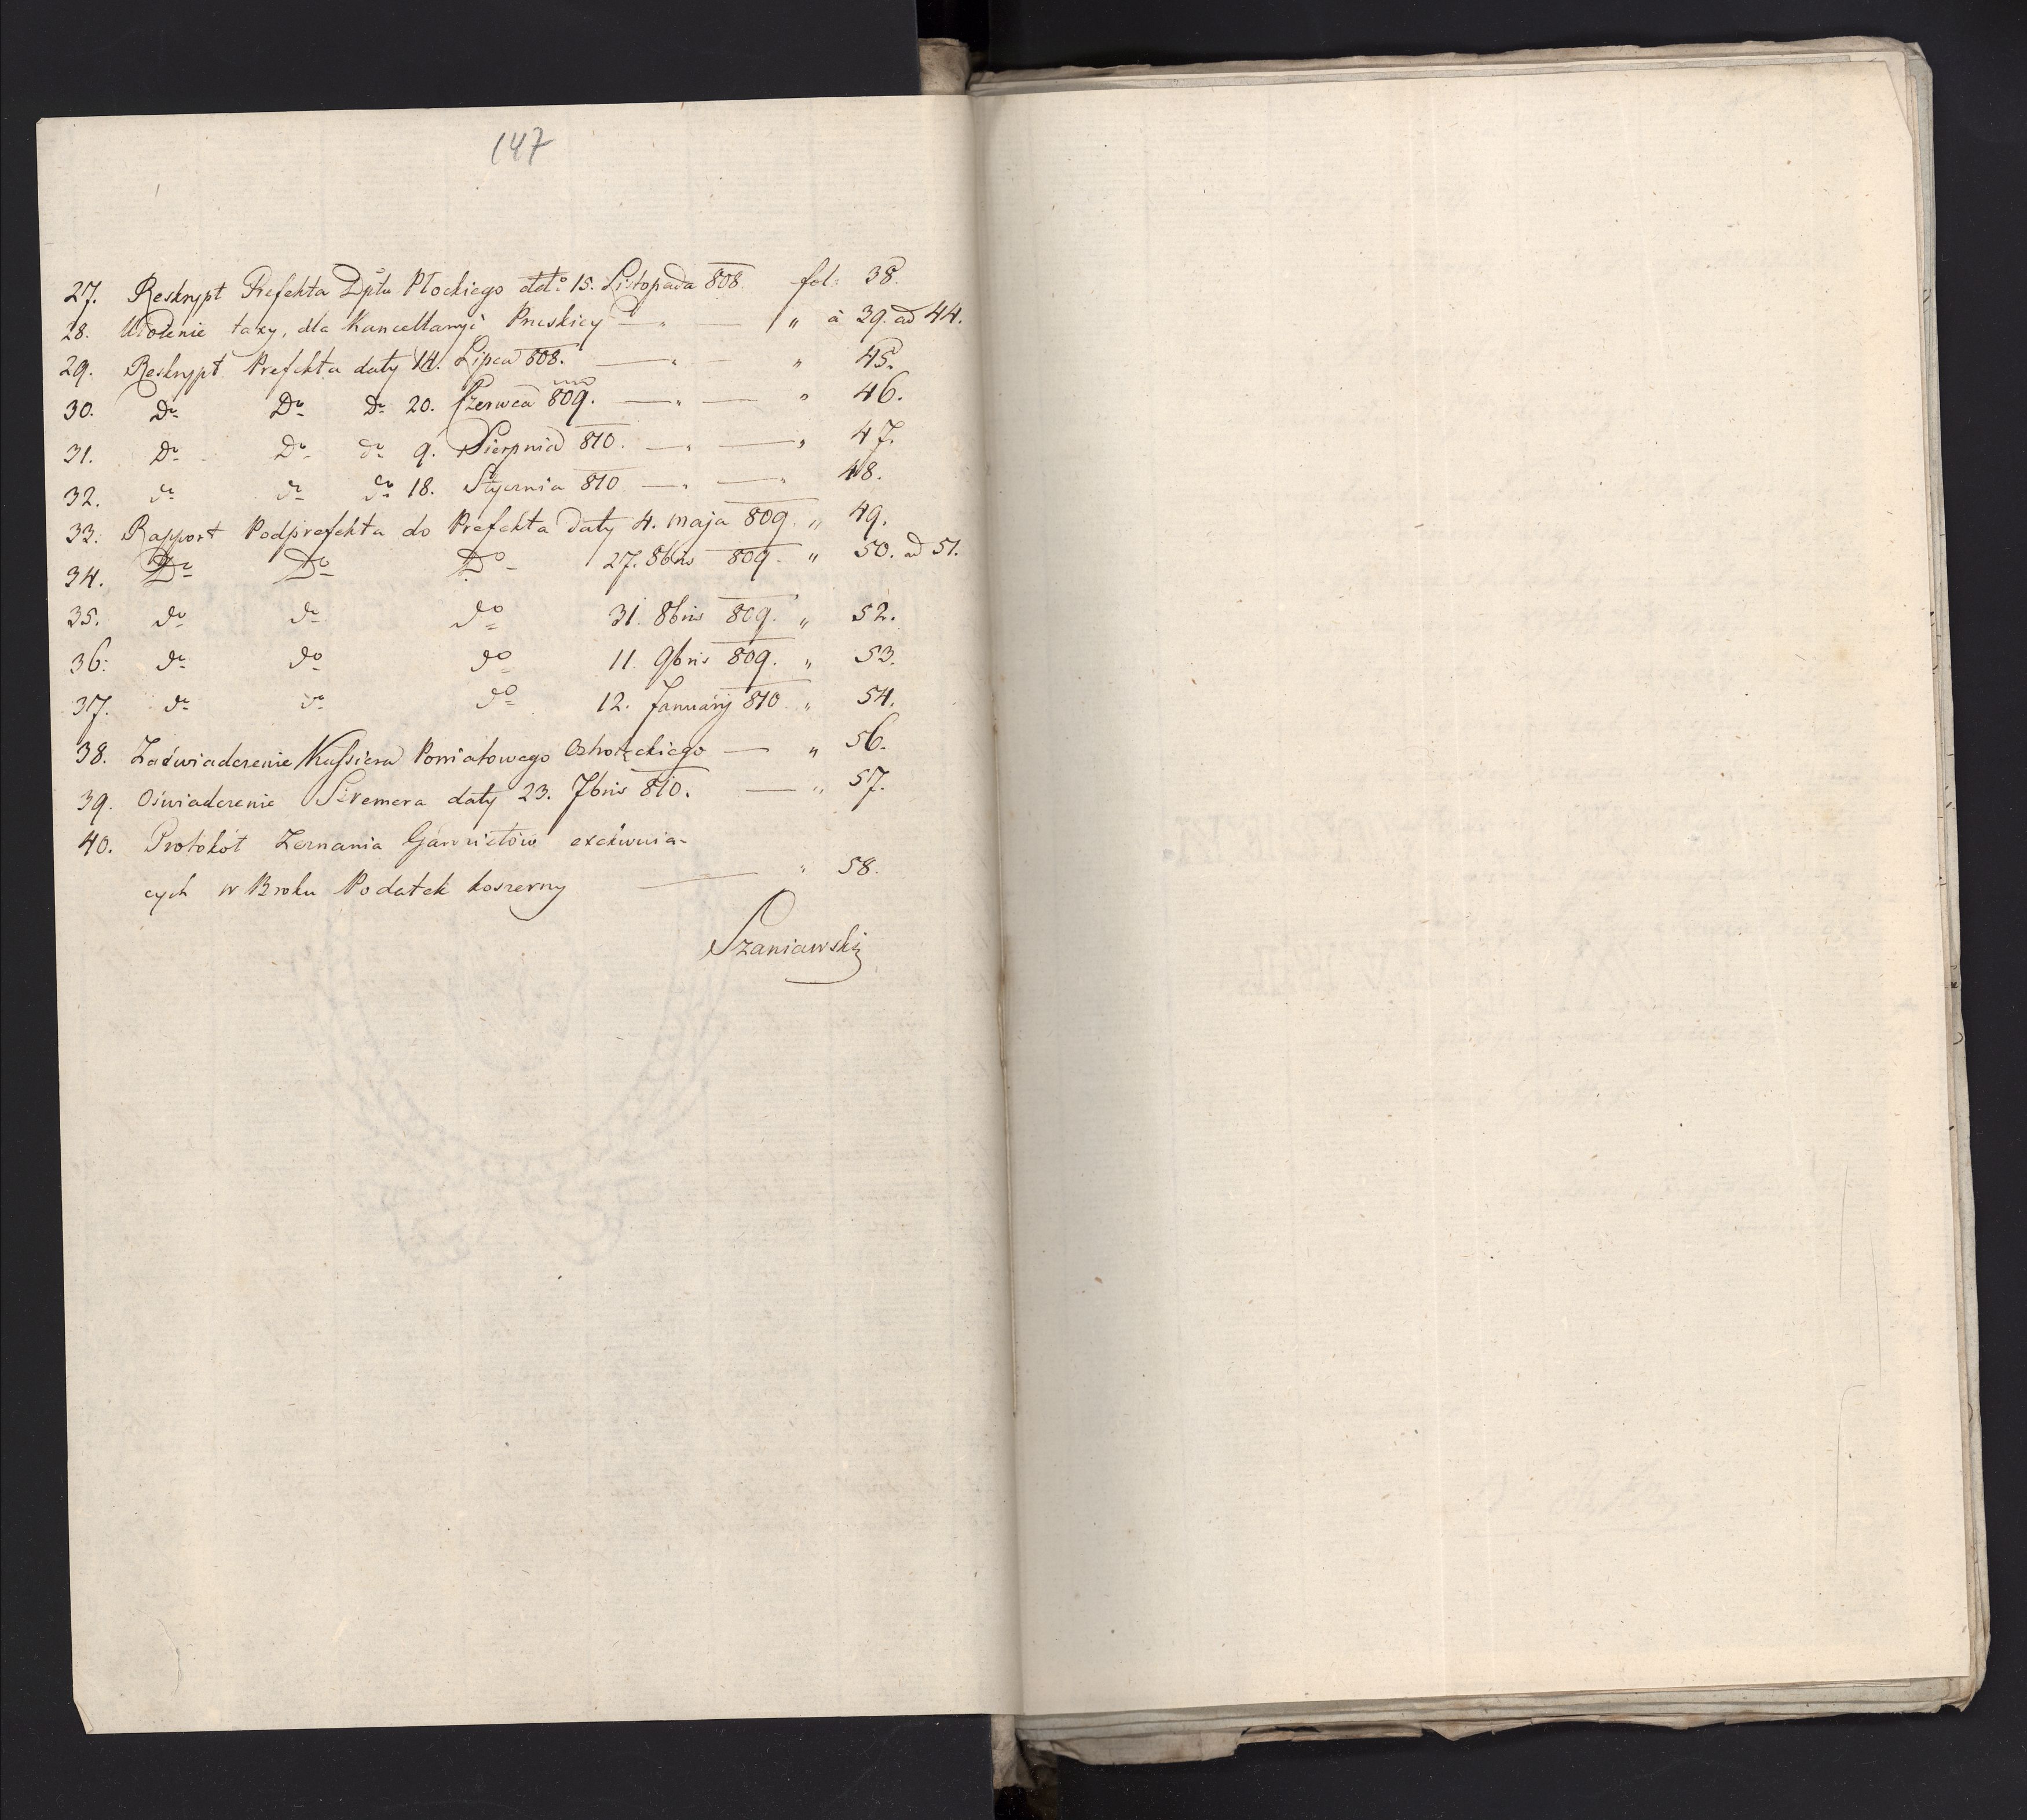 147
27. Reskrypt Prefekta Dptu Płockiego ddto 15. Listopada 808 fol: 38.
28. Ułożenie taxy, dla Kancellaryi Pruskiey — " — " a 39. ad 44.
29. Reskrypt Prefekta daty 14. Lipca 808. — " — " 45.
30. Do Do Do 20. Czerwca 809. — " — " 46.
31. Do Do do 9. Sierpnia 810. — " — " 47.
32. do do do 18. Stycznia 810 — " — " 48.
33. Rapport Podprefekta do Prefekta daty 4. maja 809. " 49.
34. Do Do Do 27. 8bris 809. " 50. ad 51.
35. do do do 31. 8bris 809. " 52.
36: do do do 11. 9bris 809. " 53.
37. do do do 12. January 810 " 54.
38. Zaświadczenie Kassiera Powiatowego Ostrołęckiego — " 56.
39. Oświadczenie daty 23. 7bris 810. — " 57.
40. Protokół Zeznania
cych w Broku Podatek koszerny — " 58.
Szaniawski